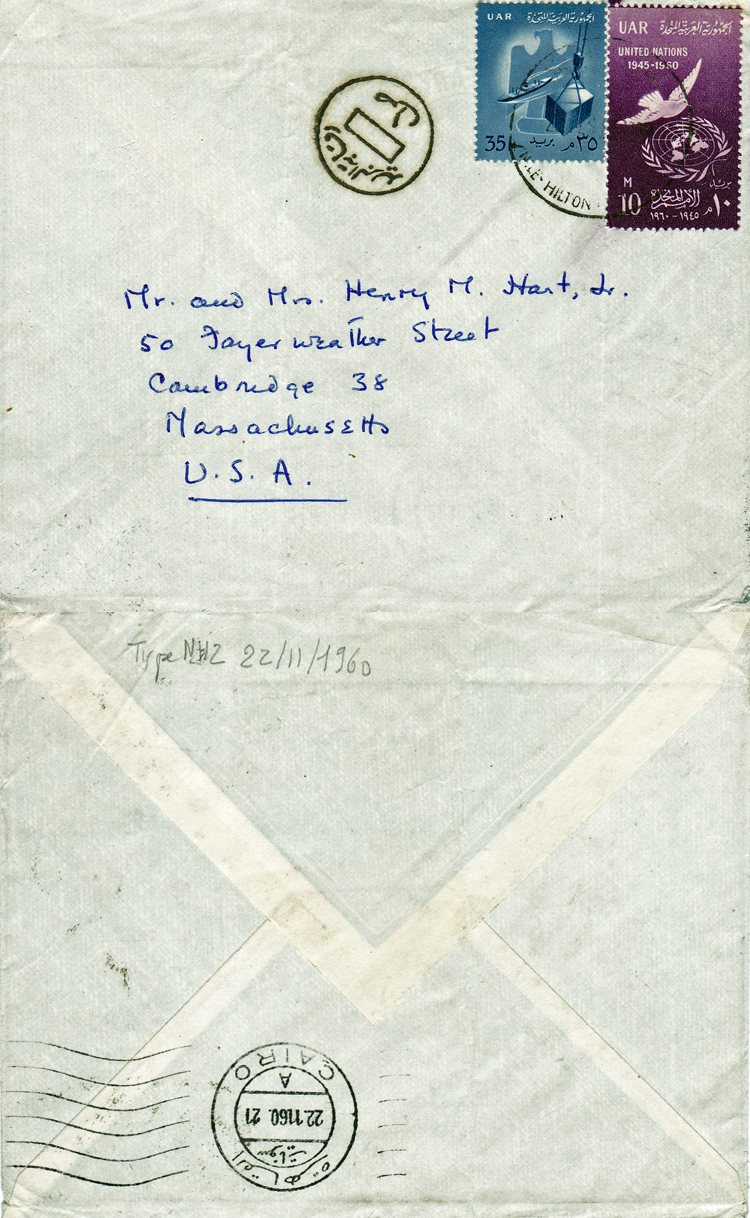 UAR الجمهورية العربية المتحدة
35 بريد ٣٥ م
UAR الجمهورية العربية المتحدة
UNITED NATIONS
1945-1960
M بريد
10 الأمم المتحدة ١٠ م
١٩٦٠ - ١٩٤٥
HILTON
Mr. and Mrs. Henry M. Hart, Jr.
50 Fayerweather Street
Cambridge 38
Massachusetts
U.S.A.
Type NH2 22/11/1960
CAIRO
A
22.1160. 21
القاهرة